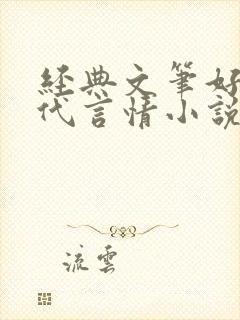 經典文筆好
代言情小說
流雲